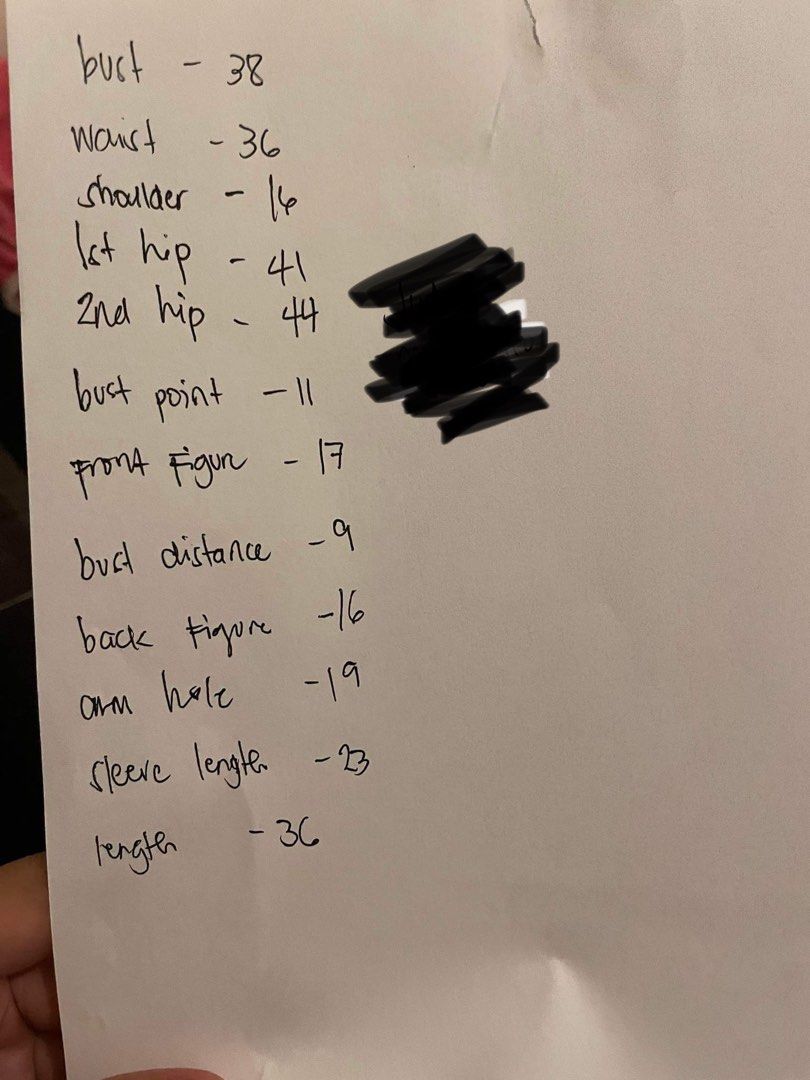 bust - 38
waist - 36
shoulder - 16
1st hip - 41
2nd hip - 44
bust point - 11
Front Figure - 17
bust distance - 9
back Figure - 16
arm hole - 19
sleeve length - 23
length - 36